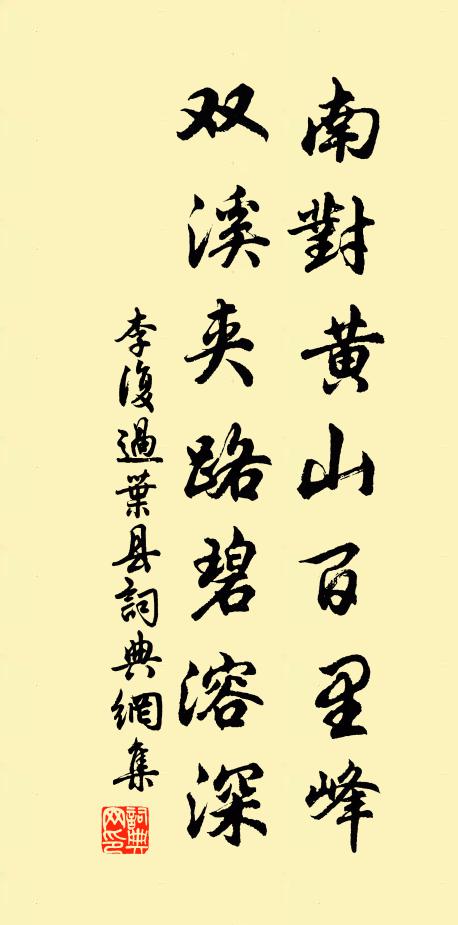 南對黄山百里峰
双溪夹路碧溶深
李復過葉县詞典網集
詞典网印